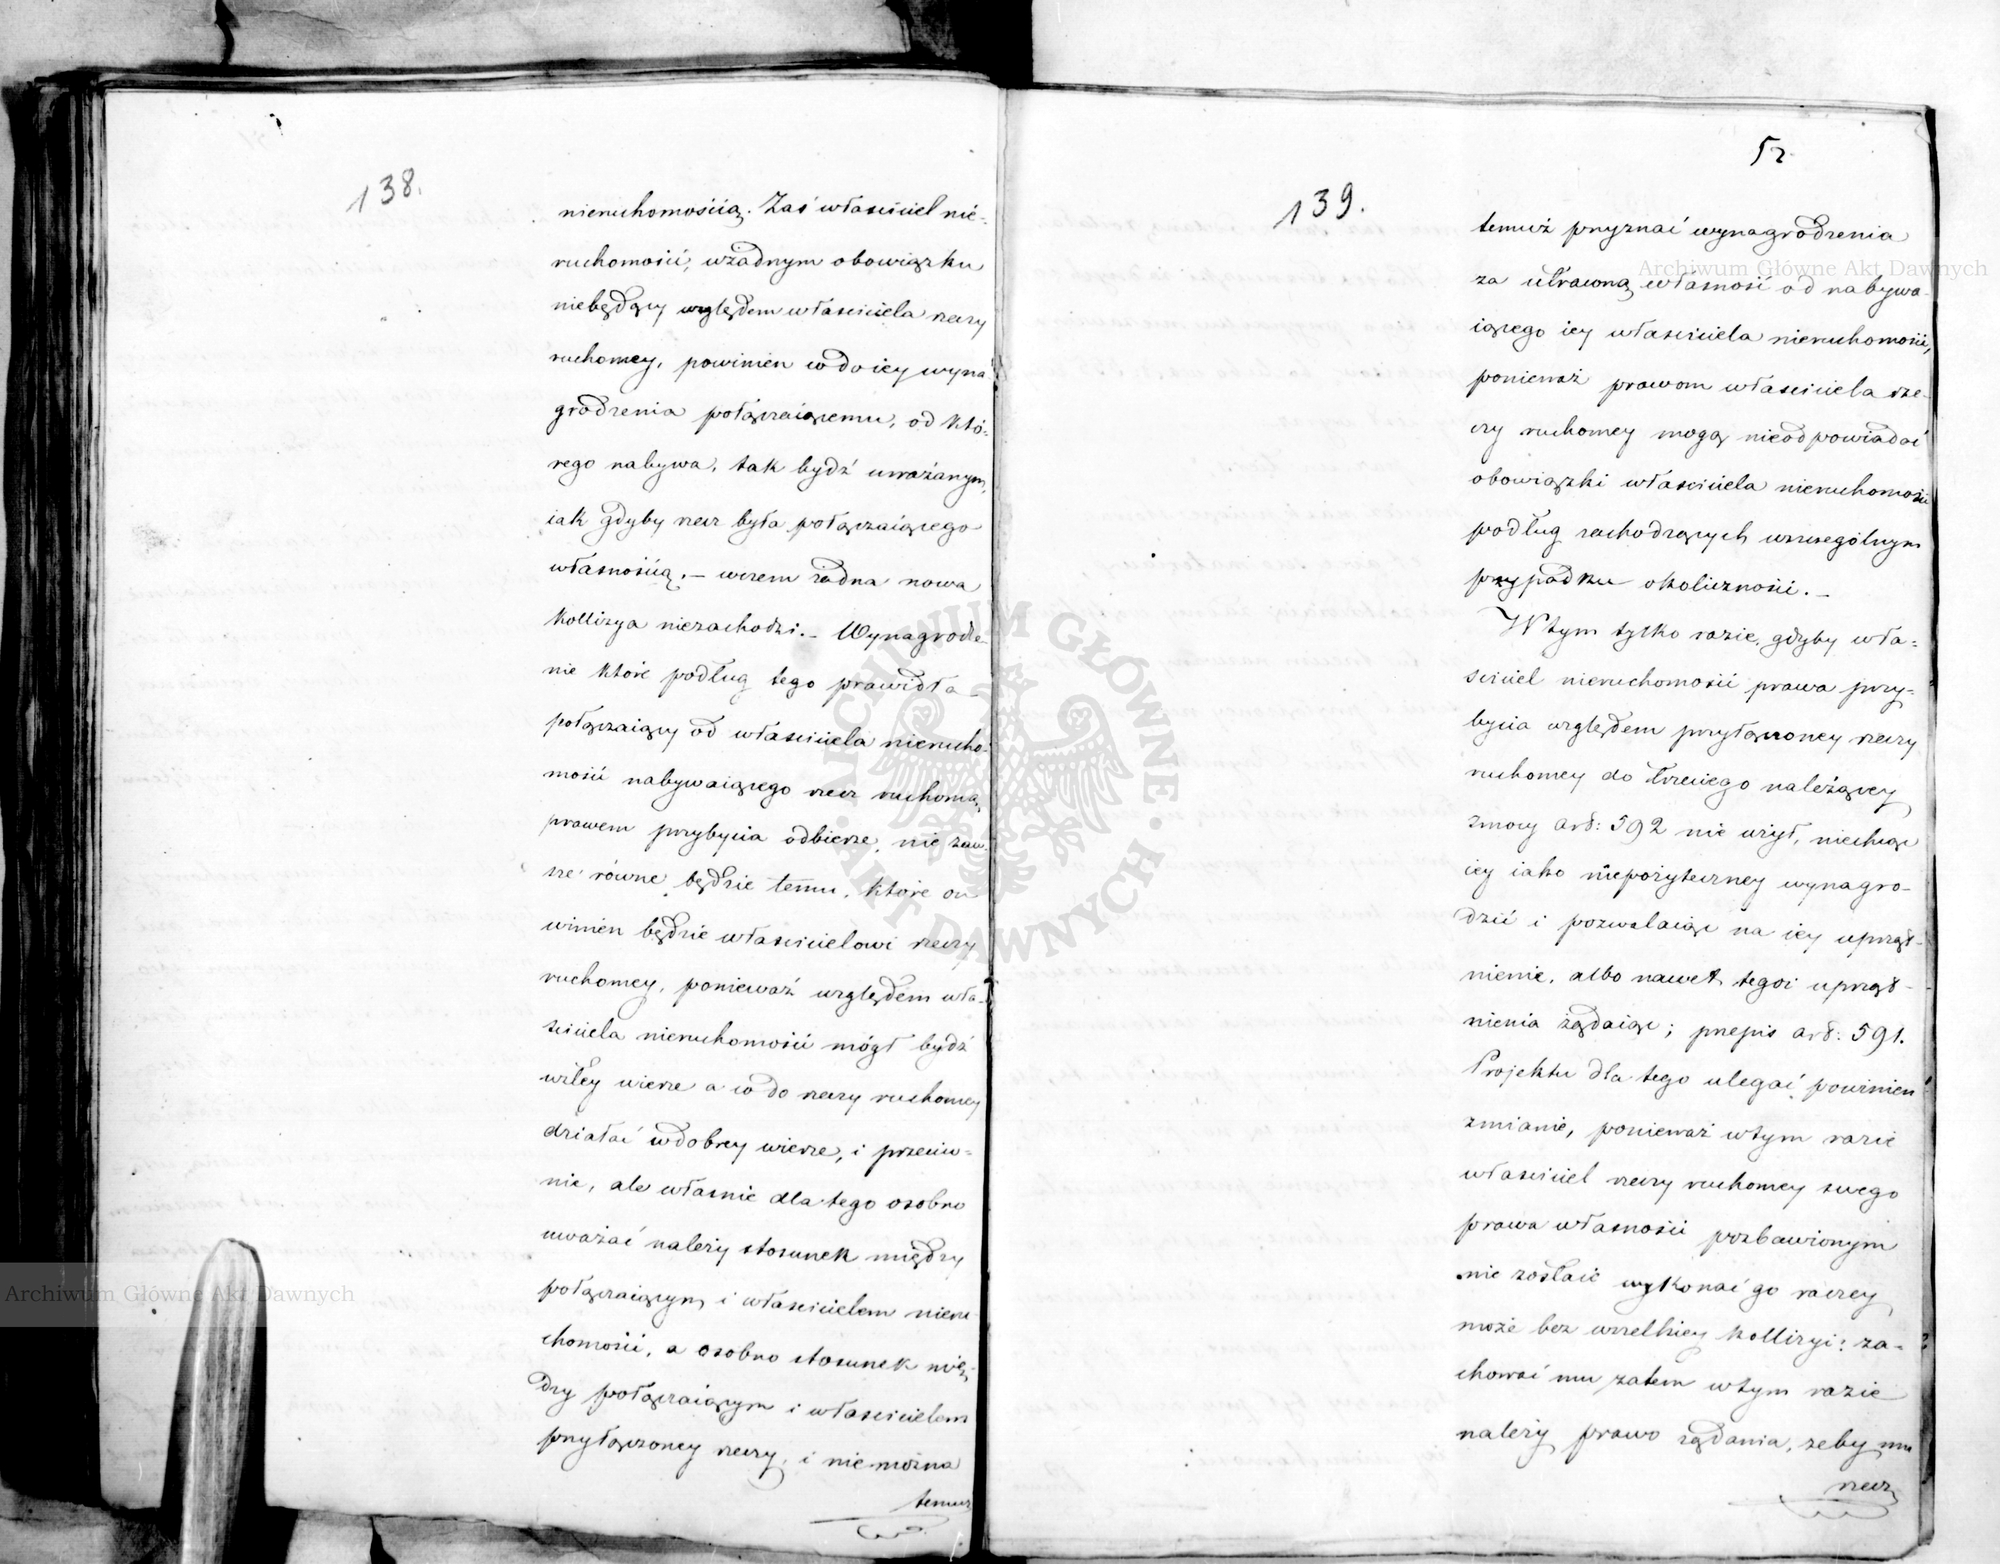 138.
nieruchomością. Zaś właściciel nie-
ruchomości, wżadnym obowiązku
niebędący względem właściciela rzeczy
ruchomey, powinien codoiey wyna-
grodzenia połączaiącemu, od któ-
rego nabywa, tak bydź uważanym,
iak gdyby rzecz była połączaiącego
własnością. — wczem żadna nowa
kollizya niezachodzi. — Wynagrodze-
nie które podług tego prawidła
połączaiący od właściciela nierucho-
mości nabywaiącego rzecz ruchomą,
prawem przybycia odbierze, nie zaw-
sze równe będzie temu, które on
winien będzie właścicielowi rzeczy
ruchomey, ponieważ względem wła-
ściciela nieruchomości mógł bydź
wzłey wierze a co do rzeczy ruchomey
działać wdobrey wierze, i przeciw-
nie, ale własnie dla tego osobno
uważać należy stosunek między
połączaiącym i właścicielem nieru-
chomości, a osobno stosunek mię-
dzy połączaiącym i właścicielem
przyłączoney rzeczy, i nie można
temuż
52.
139.
temuż przyznać wynagrodzenia
za utraconą własność od nabywa-
iącego iey właściciela nieruchomości,
ponieważ prawom właściciela rze-
czy ruchomey mogą nieodpowiadać
obowiązki właściciela nieruchomości
podług zachodzących wszczególnym
przypadku okoliczności. —
W tym tylko razie, gdyby wła-
ściciel nieruchomości prawa przy-
bycia względem przyłączoney rzeczy
ruchomey do trzeciego należącey
zmocy art: 592 nie użył, niechcąc
iey iako niepożyteczney wynagro-
dzić i pozwalaiąc na iey uprząt-
nienie, albo nawet tegoż uprząt-
nienia żądaiąc; przepis art: 591.
Projektu dla tego ulegać powinien
zmianie, ponieważ wtym razie
właściciel rzeczy ruchomey swego
prawa własności pozbawionym
nie zostaie wykonać go raczey
może bez wszelkiey kollizyi; za-
chować mu zatem wtym razie
należy prawo żądania, żeby mu
rzecz
Archiwum Główne Akt Dawnych
Archiwum Główne Akt Dawnych
ARCHIWUM GŁÓWNE AKT DAWNYCH